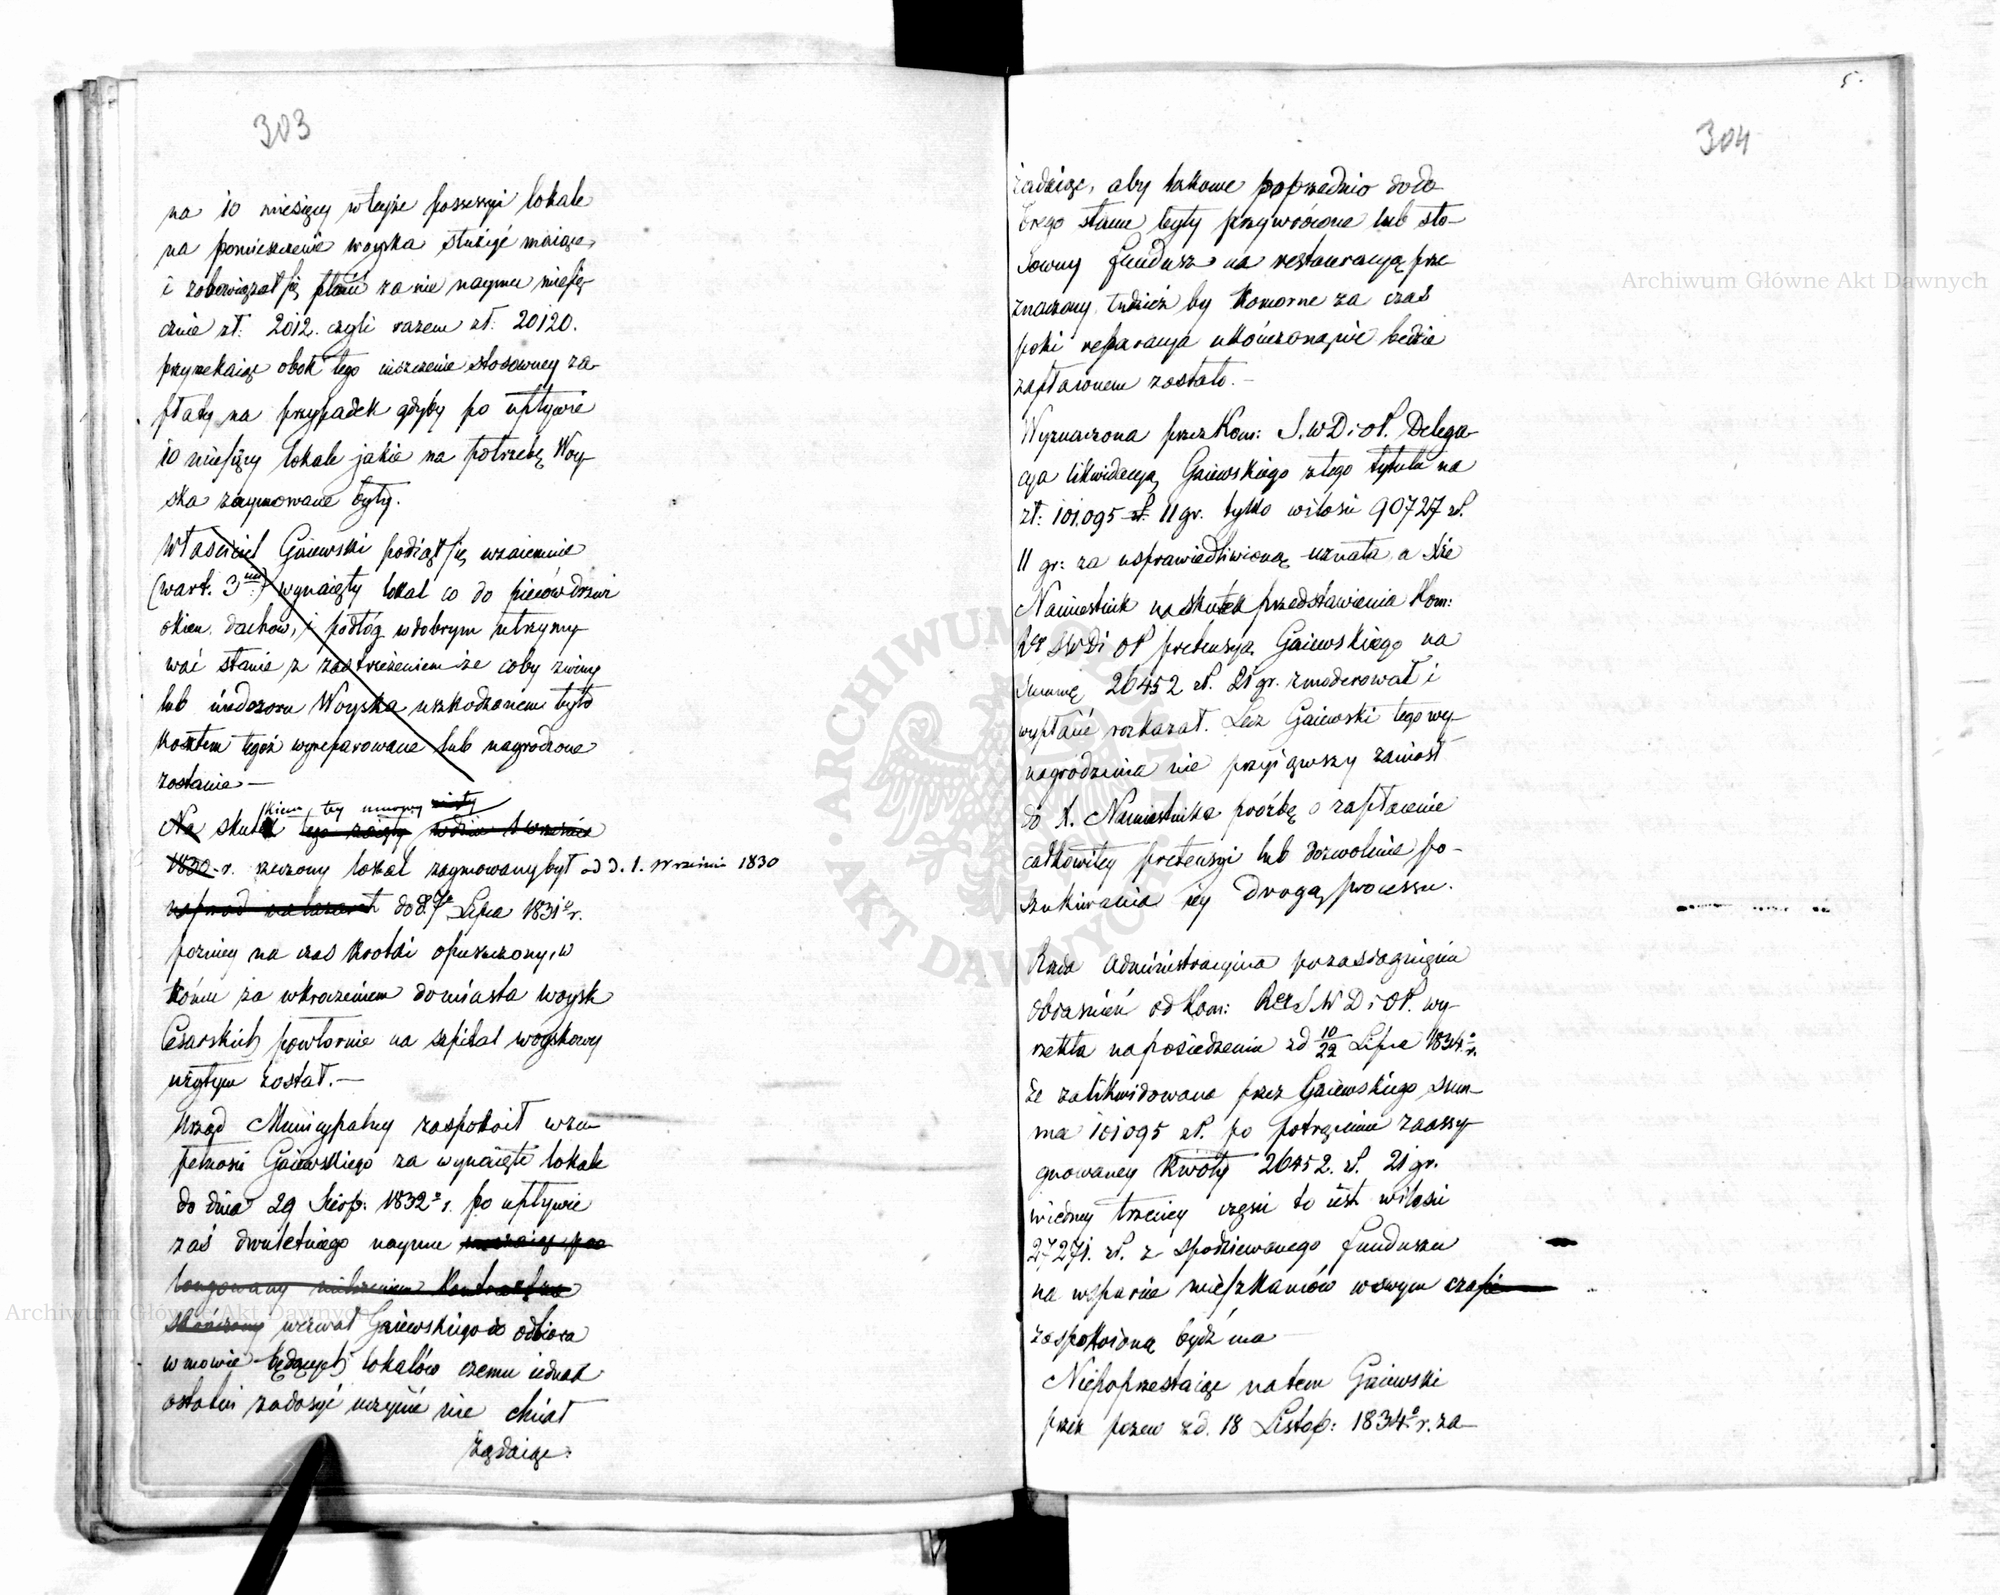 303
na 10 miesięcy wteyże possessyi lokale
na pomieszczenie woyska służyć maiące,
i zobowiązał się płacić za nie naymu miesię
cznie zł: 2012. czyli razem zł: 20120.
przyrzekaiąc obok tego uiszczenie stosowney za-
płaty na przypadek gdyby po upływie
10 miesięcy lokale jakie na potrzebę Woy-
ska zaymowane były.
Właściciel Gaiewski podiął się wzaiemnie
(w art. 3m) wynaięty lokal co do pieców drzwi
okien, dachów, i podłóg w dobrym utrzymy-
wać stanie z zastrzeżeniem że coby z winy
lub niedozoru Woyska uszkodzonem było
kosztem tegoż wyreparowane lub nagrodzone
zostanie —
kiem tey umowy
Na skut tego zaięty w dniu 1 Września
1830 r. rzeczony lokal zaymowany był od d. 1. Września 1830
do d 7 Lipca 1831 r.
pozniey na czas krotki opuszczony, w
końcu za wkroczeniem do miasta woysk
Cesarskich powtornie na szpital woyskowy
użytym został. —
Urząd Municypalny zaspokoił w zu-
pełności Gaiewskiego za wynaięte lokale
do dnia 29 Sierp: 1832 r. po upływie
zaś dwuletniego naymu
kontraktu
wezwał Gaiewskiego do odbioru
w mowie będących lokalów czemu iednak
ostatni zadosyć uczynić nie chciał
Żądaiąc:
5.
304
żądaiąc, aby takowe poprzednio do do-
brego stanu były przywrócone lub sto-
sowny fundusz na restauracyą prze
znaczony, tudzież by komorne za czas
poki reparacya ukończoną nie będzie
zapłaconem zostało. —
Wyznaczona przez Kom: S. W D i O P. Delega-
cya likwidacyą Gaiewskiego z tego tytułu na
zł: 101.095 zł. 11 gr. tylko w ilości 90727 zł.
11 gr: za usprawiedliwioną uznała, a Xże
Namiestnik na skutek przedstawienia Kom:
Rz SW D i OP pretensyą Gaiewskiego na
Summę 26452 zł. 21 gr. zmoderował i
wypłacić rozkazał. Lecz Gaiewski tego wy-
nagrodzenia nie przyiąwszy zaniosł
do X. Namiestnika prośbę o zapłacenie
całkowitey pretensyi lub dozwolenie po-
szukiwania iey drogą processu.
Rada Administracyina po zasiągnięciu
obiaśnień od Kom: Rz S. W D i OP. wy-
rzekła na posiedzeniu z d 10/22 Lipca 1834 r.
że zalikwidowana przez Gaiewskiego sum-
ma 101095 zł. po potrąceniu zaassy-
gnowaney kwoty 26452. zł. 21 gr.
w iedney trzeciey części to iest w ilości
27271. zł. z spodziewanego funduszu
na wsparcie mieszkańców w swym czasie
zaspokoioną bydź ma —
Niepoprzestaiąc na tem Gaiewski
przez pozew z d. 18 Listop: 1834 r. za-